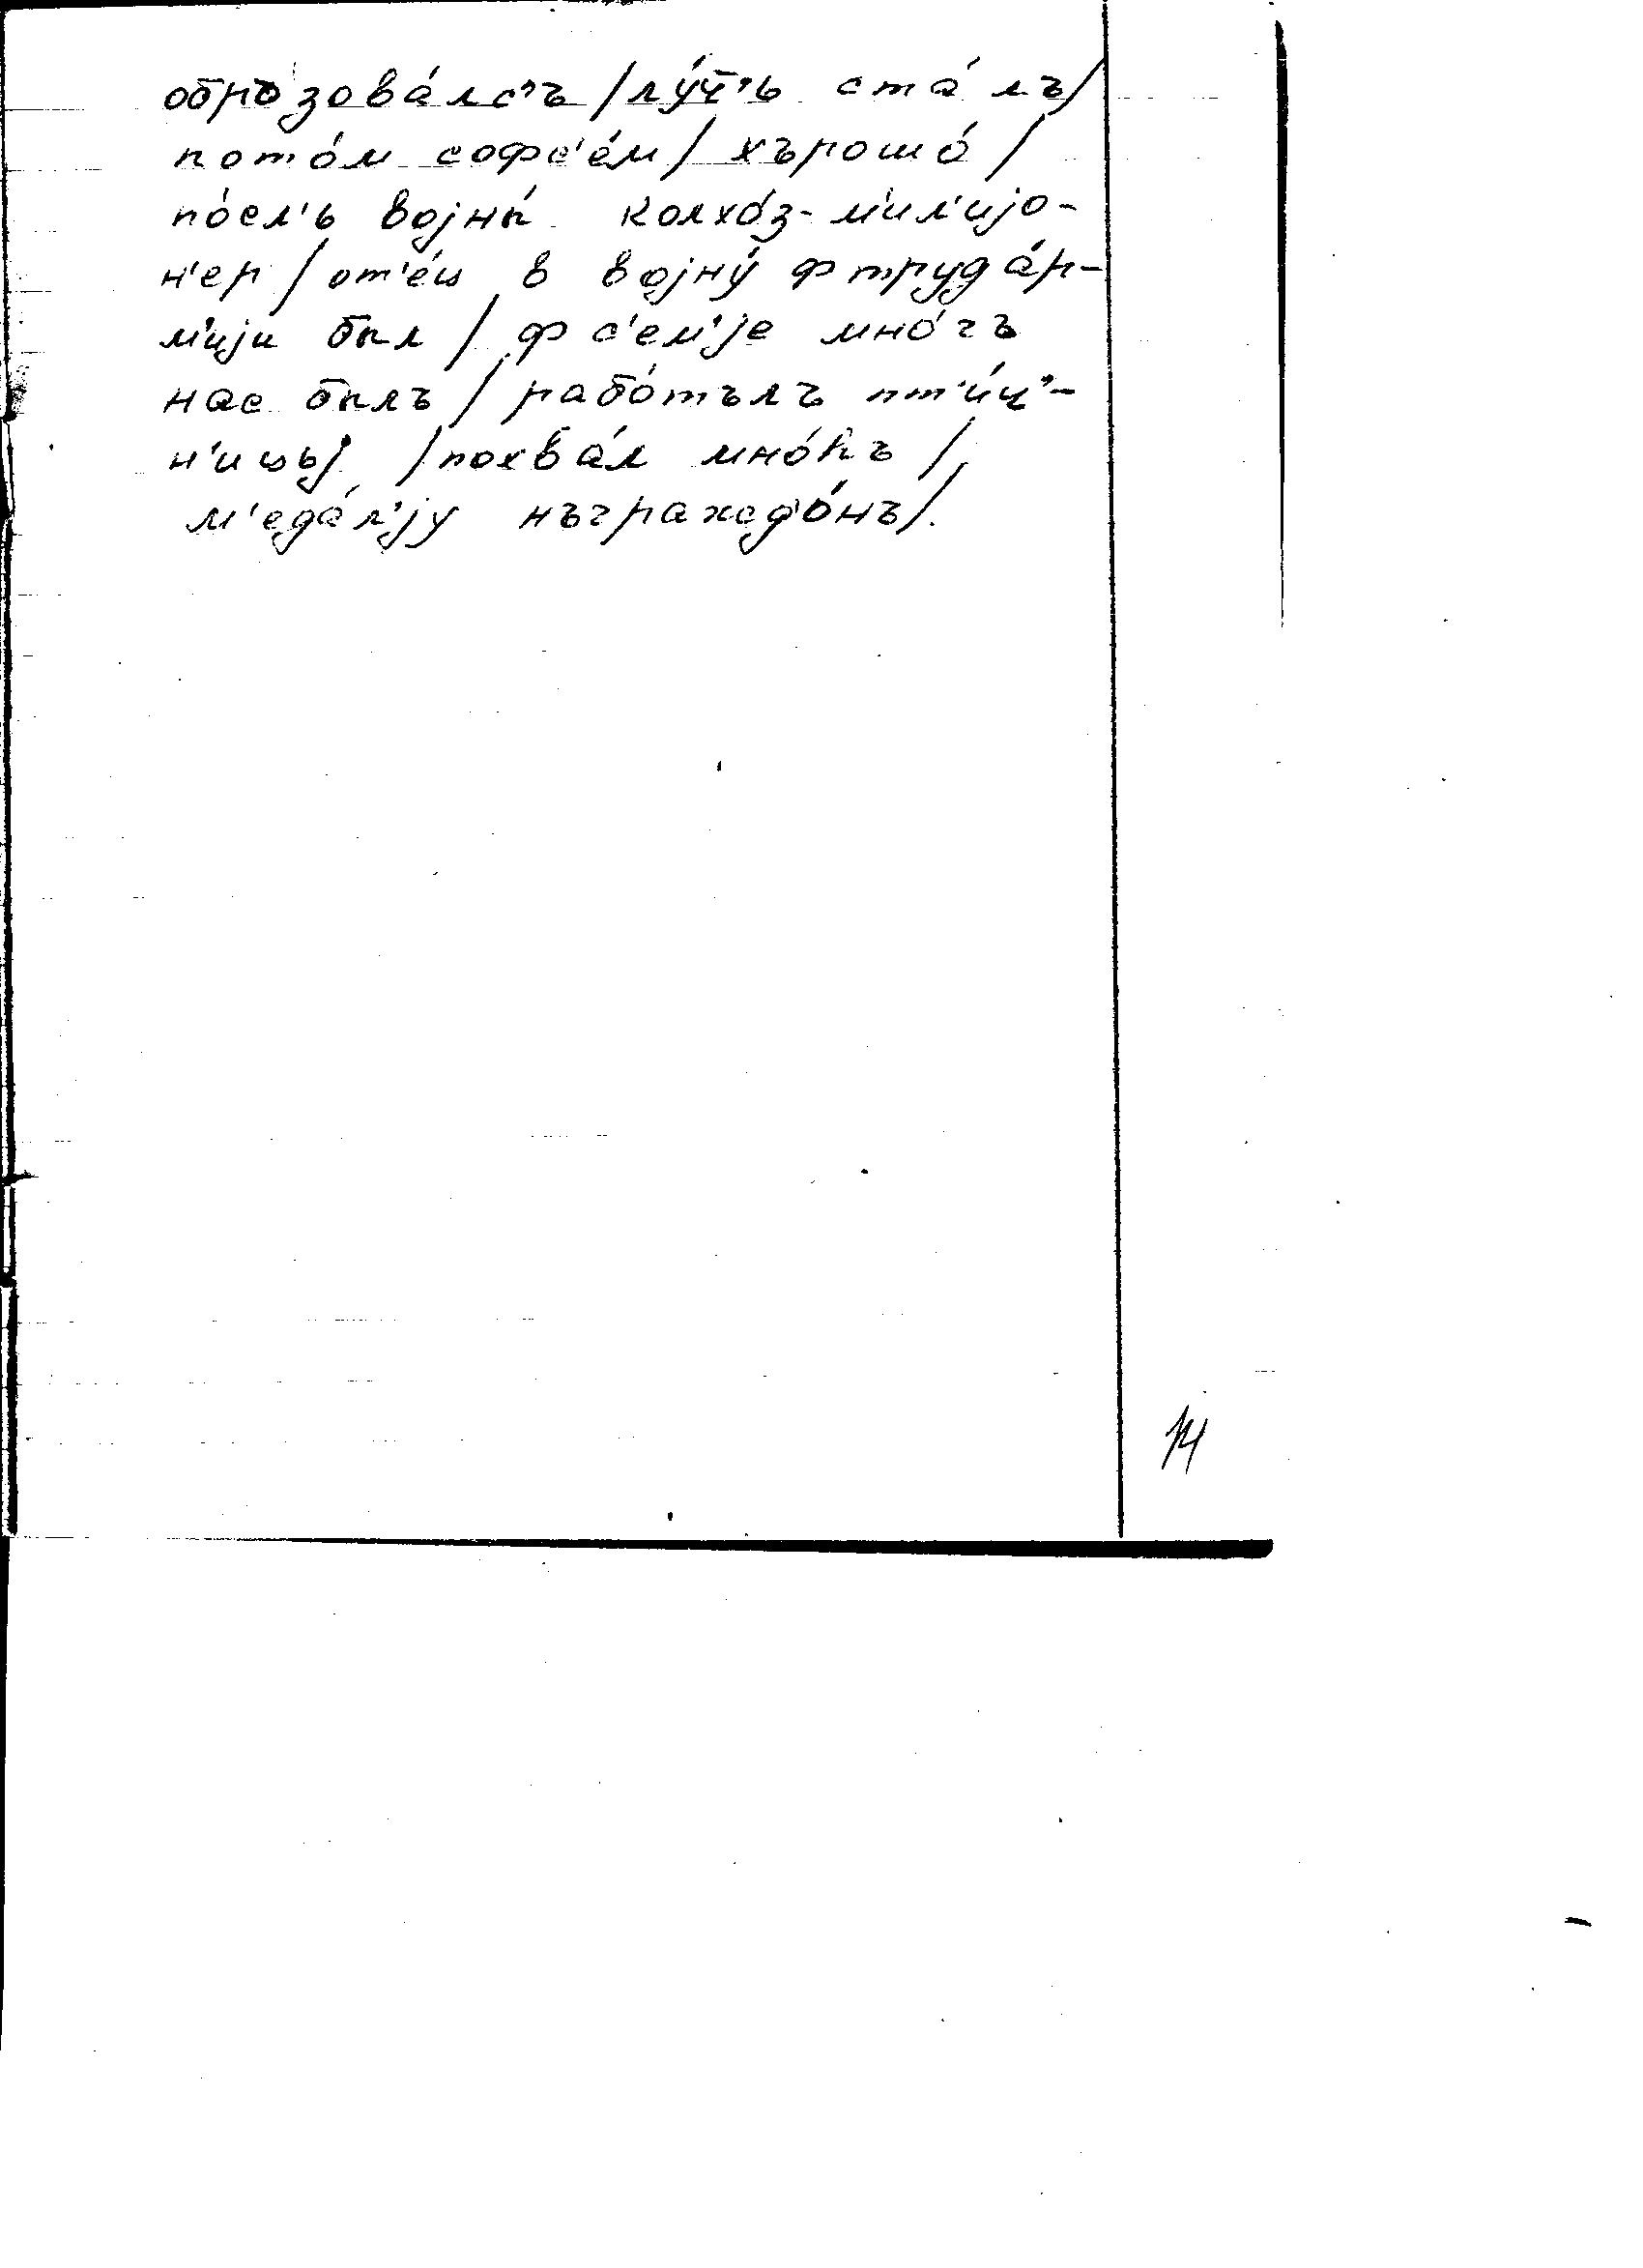 обръзова́лс'ъ / лу́ч'ь ста́лъ /
пото́м софс'е́м / хърошо́ /
по́сл'ь војны́ колхо́з-м'ил'ијо-
н'ер / от'е́ц в војну́ ф трудáр-
м'ији был / ф с'ем'је мно́гъ
нас былъ / рабо́тълъ пт'и́ч'-
н'ицъј / похва́л мно́гъ /
м'еда́л'ју нъгражд'о́нъ /.
14